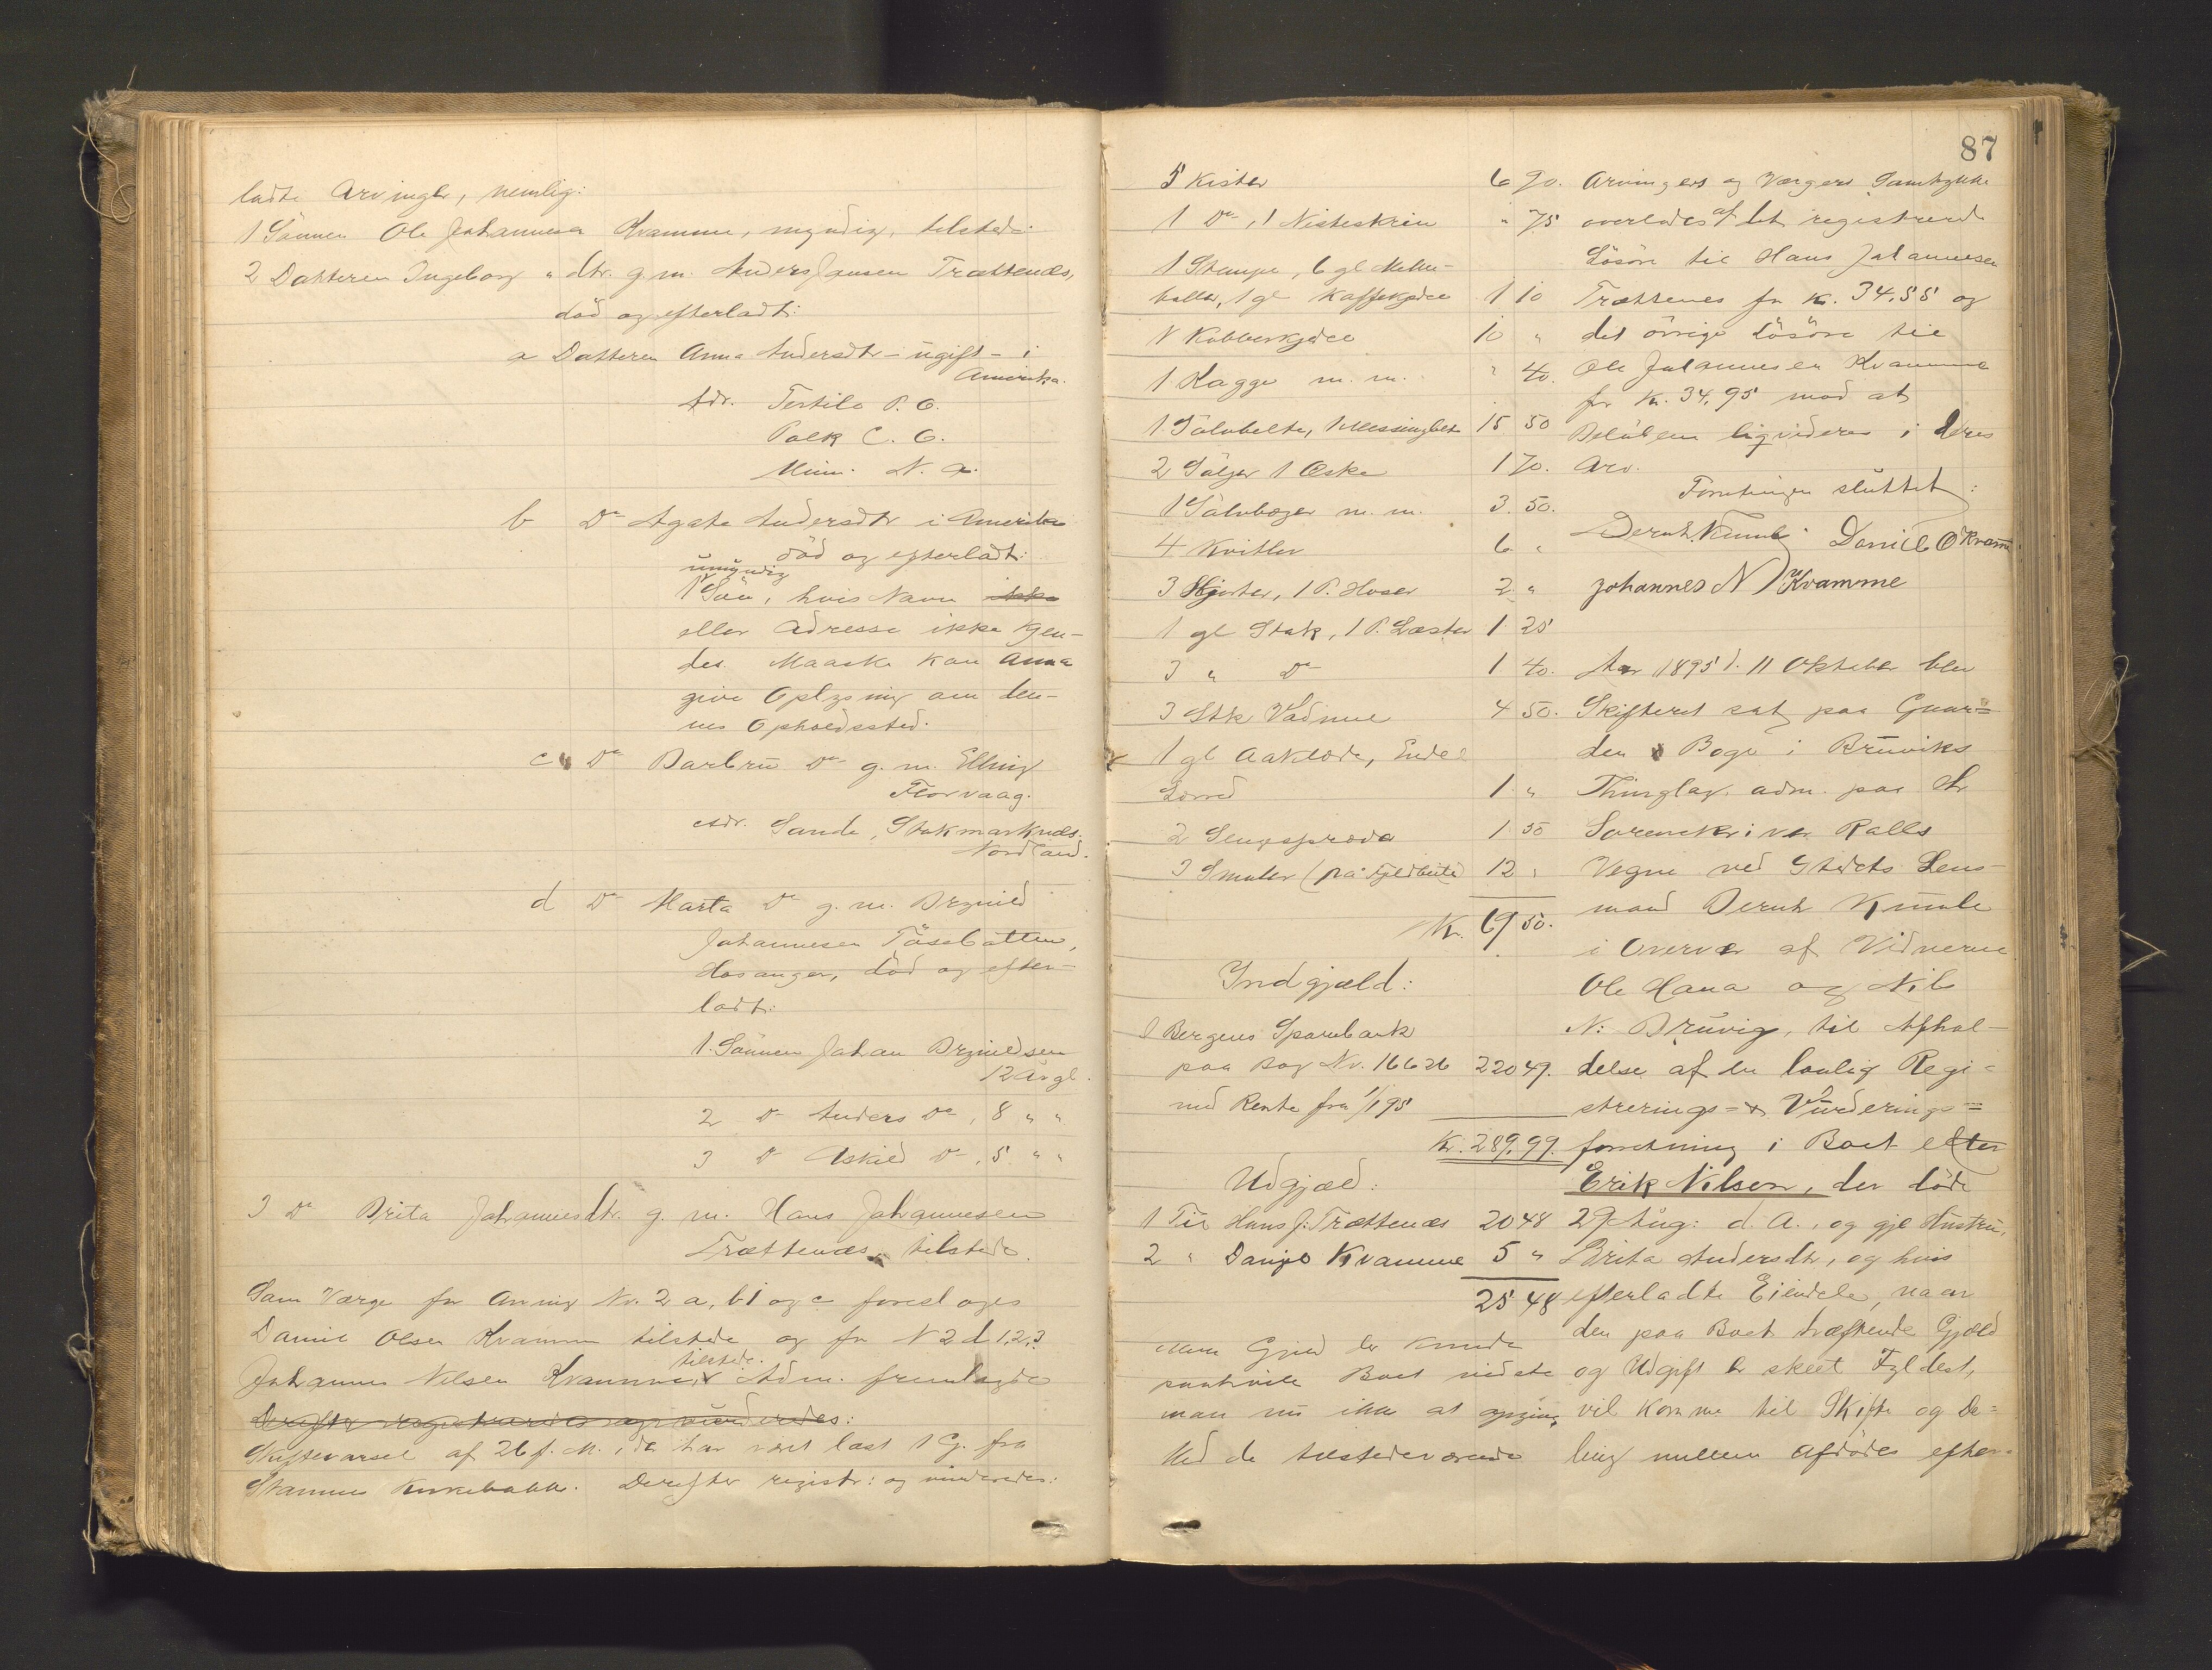 ladte Arvinger, nemlig:
1 Sønnen Ole Johannesen Kvamme, myndig, tilstede
2 Datteren Ingeborg " dtr. g. m. Anders Jansen Trættenæs,
død og efterladt:
a Datteren Anna Andersdtr - ugift - i
Amerika.
Adr. Fertile P. O.
Polk C. O.
Minn. N. A.
b Do Agate Andersdtr i Amerika
død og efterladt:
umyndig
1 Søn, hvis Navn ikke
eller Adresse ikke kjen-
des. Maaske kan Anna
give Oplysning om den-
nes Opholdssted.
c Do Barbru Do g. m. Elling
Florvaag.
Adr. Sande, Stokmarknæs.
Nordland.
d Do Marta Do g. m. Brynild
Johannesen Tøsebotten,
Hosanger, død og efter-
ladt:
1. Sønnen Johan Brynildsen
12 Aar gl.
2 Do Anders Do, 8 " "
3 Do Askild Do, 5 " "
3 Do Brita Johannesdtr. g. m. Hans Johannesen
Trættenæs, tilstede.
Som Værge for Arving Nr. 2 a, b 1 og c foresloges
Daniel Olsen Kvamme tilstede og for N 2 d 1, 2, 3
tilstede.
Johannes Nilsen Kvamme, Adm. fremlagde
Derefter registreredes og vurderedes:
Skiftevarsel af 26 f. M., der har været læst 1 G. fra
Stammes Kirkebakke. Derefter registr: og vurderedes:
87
5 Kister 6 70.
1 Do, 1 Nisteskrin " 75
1 Stampe, 6 gl Melke-
boller, 1 gl Kaffekjedel 1 10
1 Kobberkjedel 10 "
1 Kagge m. m. " 40.
1 Sølvbelte, 1 Messingbelt 15 50
2 Søljer 1 Æske 1 70.
1 Sølvbæger m. m. 3. 50.
4 Kvitler 6 "
3 Skjorter, 1 P. Hoser 2 "
1 gl Stak, 1 P. Læster 1 25
3 " Do 1 40.
3 Stk Vadmel 4 50.
1 gl Aaklæde, Endel
Lærred 1 "
2 Sengespreder 1 50
3 Smaler (på Fjeldbeite) 12 "
Kr. 69 50.
Indgjæld:
I Bergens Sparebank
paa Bog Nr. 16626 220 49.
med Rente fra 1/1 95
Kr. 289,99.
Udgjæld:
1 Til Hans J. Trættenæs 20 48
2 " Daniel Kvamme 5 "
25 48
Mere Gjæld der kunde
paahvile Boet vidste
man nu ikke at opgive.
Ved de tilstedeværende
Arvingers og Værgers Samtykke
overlodes af det registrerede
Løsøre til Hans Johannesen
Trættenes for Kr. 34.55 og
det øvrige Løsøre til
Ole Johannesen Kvamme
for Kr. 34.95 mod at
Beløbene ligvideres i deres
Arv.
Forretningen sluttet:
Bernh. Kumle Daniel O Kvamme
Johannes N Kvamme
Aar 1895 d. 11 Oktober blev
Skifteret sat paa Gaar=
den Boge i Bruviks
Thinglag, adm. paa Hr
Sorenskriver Ralls
Vegne ved Stedets Lens-
mand Bernh Kumle
i Overvær af Vidnerne
Ole Hana og Nils
N. Bruvig, til Afhol-
delse af en lovlig Regi-
strerings= & Vurderings=
forretning i Boet efter
Erik Nilsen, der døde
29 Aug: d. A., og gjl Hustru,
Brita Andersdtr, og hvis
efterladte Eiendele, naar
den paa Boet hæftende Gjæld
og Udgift er skeet Fyldest,
vil komme til Skifte og De=
ling mellem Afdødes efter=